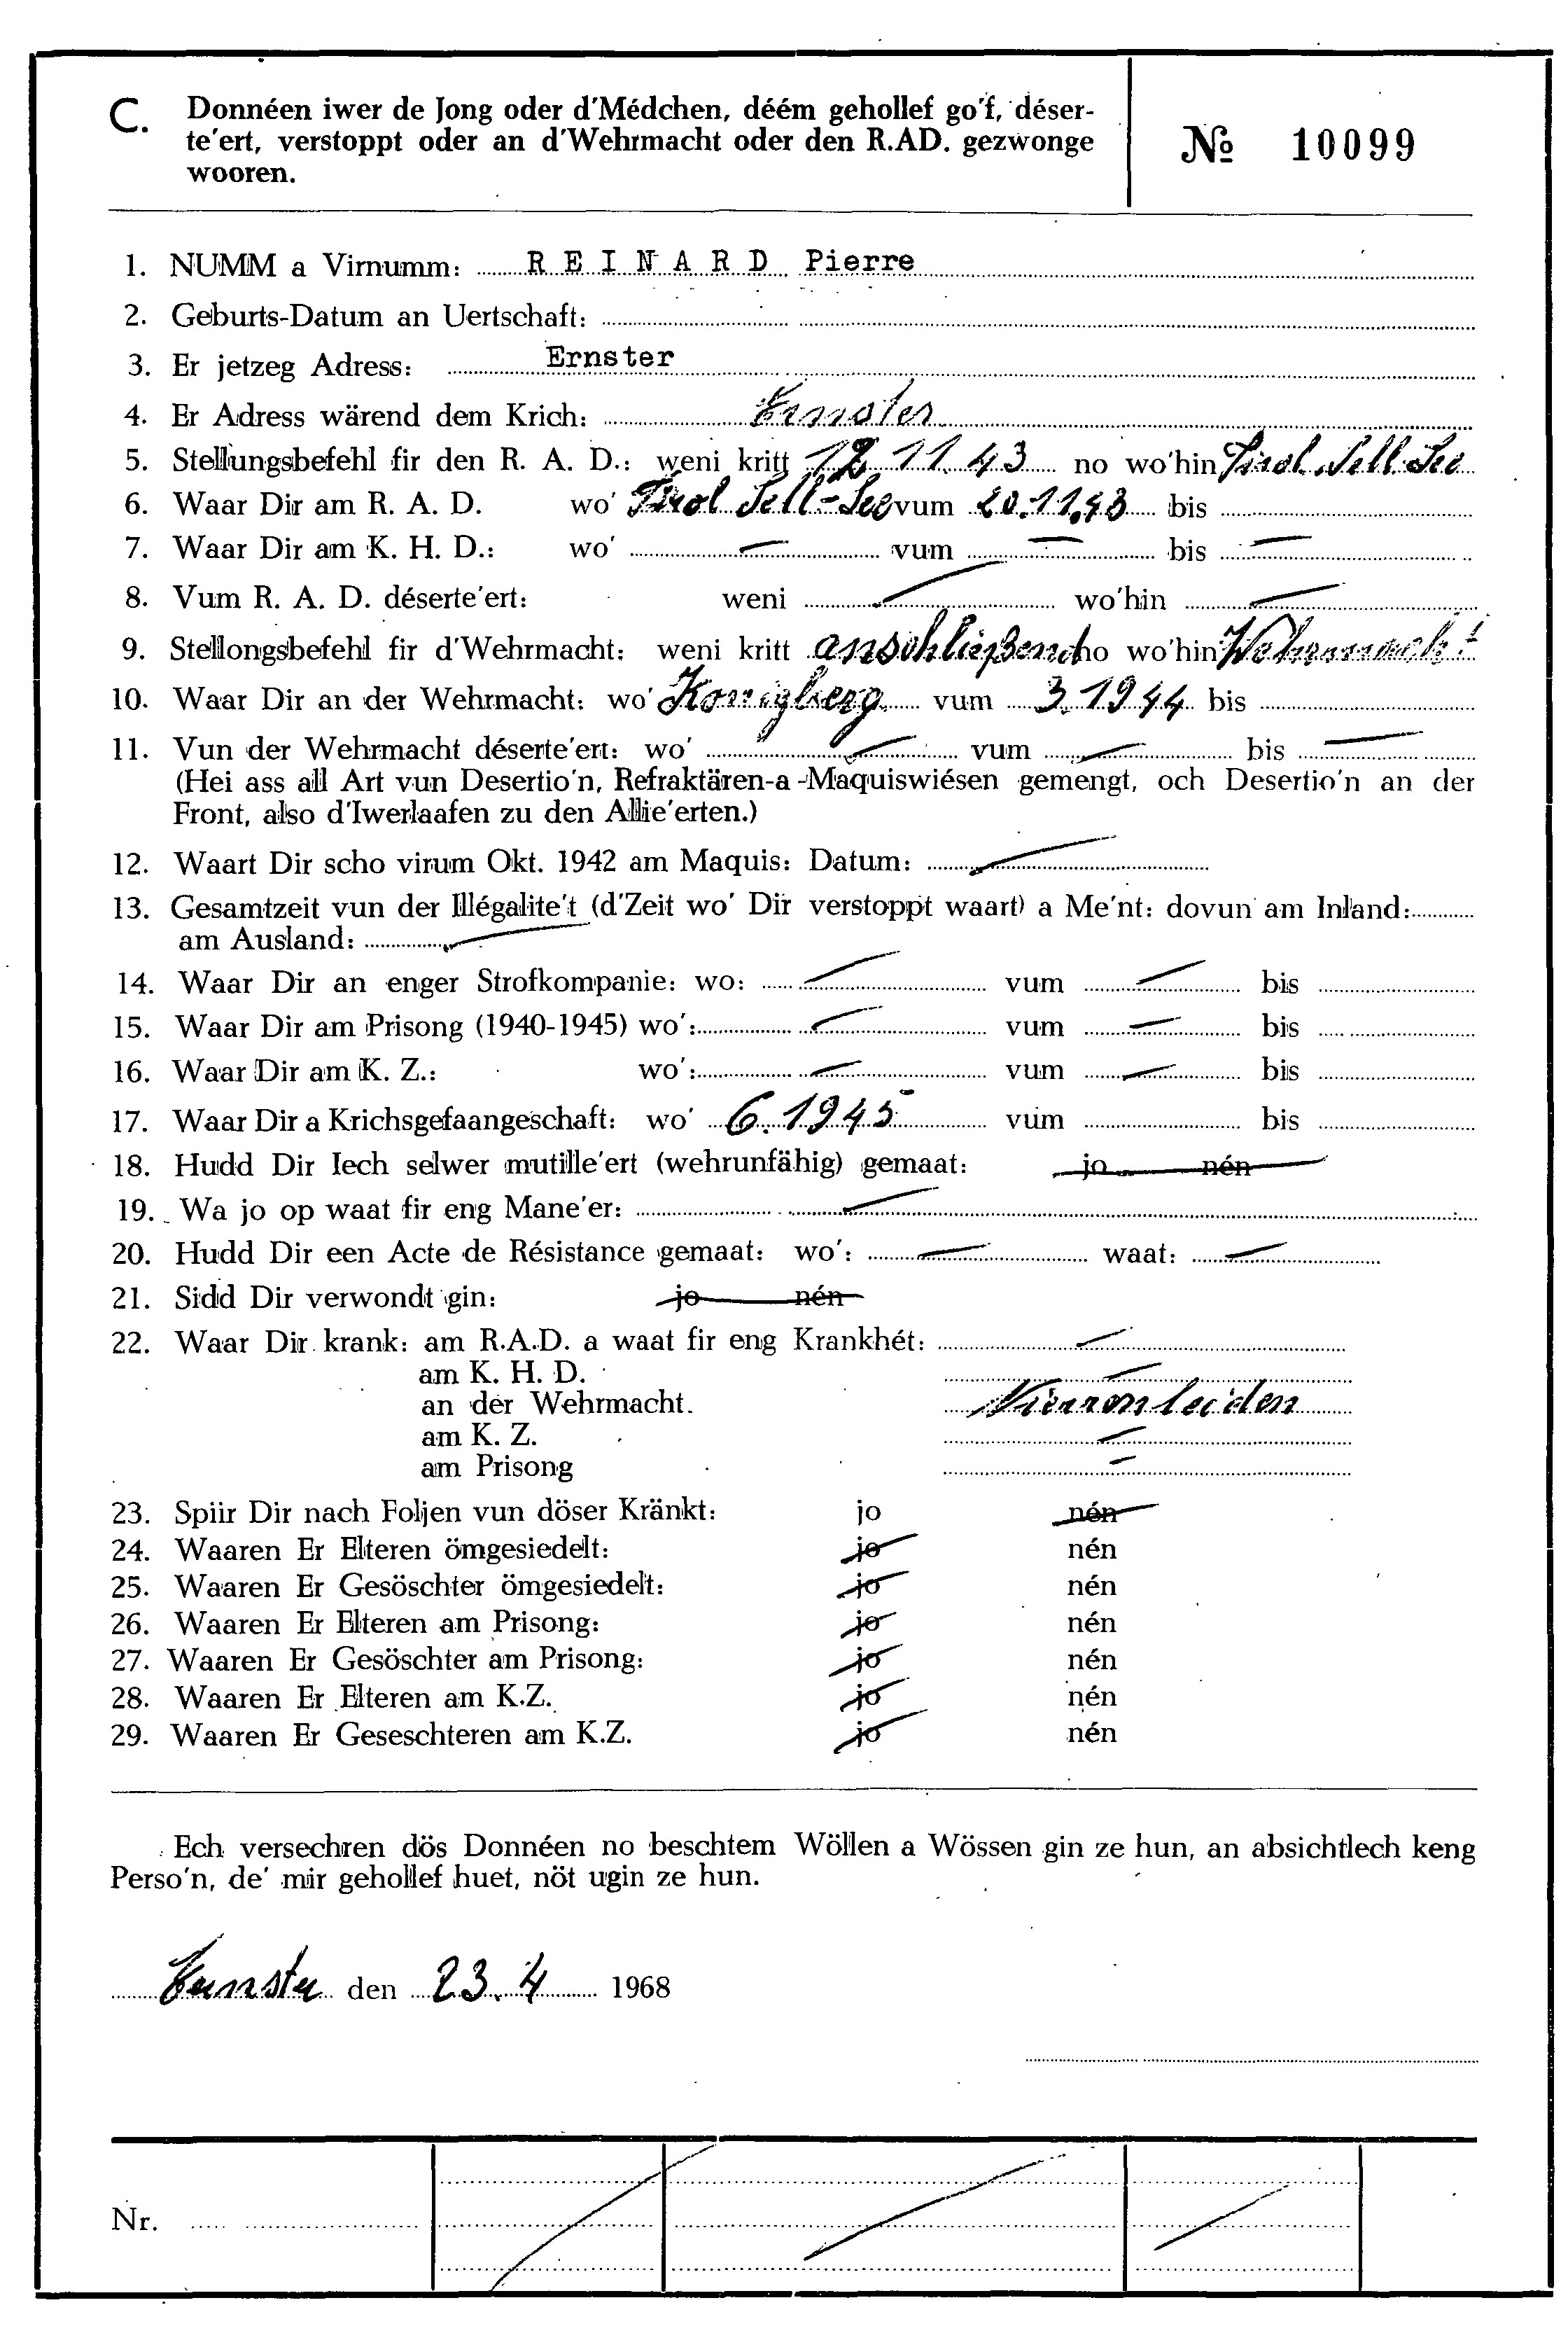 C. Donnéen iwer de Jong oder d'Médchen, déém gehollef go'f, déser-
te'ert, verstoppt oder an d'Wehrmacht oder den R.AD. gezwonge
wooren.
№ 10099
1. NUMM a Virnumm: REINARD Pierre
2. Geburts-Datum an Uertschaft:
3. Er jetzeg Adress: Ernster
4. Er Adress wärend dem Krich: Ernster
5. Stellungsbefehl fir den R. A. D.: weni kritt 12 11. 43 no wo'hin Tirol Sell See
6. Waar Dir am R. A. D. wo' Tirol Sell-See vum 20.11.43 bis
7. Waar Dir am K. H. D.: wo' — vum — bis —
8. Vum R. A. D. déserte'ert: weni — wo'hin —
9. Stellongsbefehl fir d'Wehrmacht: weni kritt anschließend no wo'hin Wehrmacht
10. Waar Dir an der Wehrmacht: wo' Konigberg vum 3.1944 bis
11. Vun der Wehrmacht déserte'ert: wo' — vum — bis —
(Hei ass all Art vun Desertio'n, Refraktären-a-Maquiswiésen gemengt, och Desertio'n an der
Front, also d'Iwerlaafen zu den Allie'erten.)
12. Waart Dir scho virum Okt. 1942 am Maquis: Datum: —
13. Gesamtzeit vun der Illégalite't (d'Zeit wo' Dir verstoppt waart) a Me'nt: dovun am Inland:
am Ausland: —
14. Waar Dir an enger Strofkompanie: wo: — vum — bis
15. Waar Dir am Prisong (1940-1945) wo': — vum — bis
16. Waar Dir am K. Z.: wo': — vum — bis
17. Waar Dir a Krichsgefaangeschaft: wo' 6.1945 vum bis
18. Hudd Dir Iech selwer mutille'ert (wehrunfähig) gemaat: jo nén
19. Wa jo op waat fir eng Mane'er: —
20. Hudd Dir een Acte de Résistance gemaat: wo': — waat: —
21. Sidd Dir verwondt gin: jo nén
22. Waar Dir krank: am R.A.D. a waat fir eng Krankhét: —
am K. H. D. —
an der Wehrmacht. Nierenleiden
am K. Z. —
am Prisong —
23. Spiir Dir nach Foljen vun döser Kränkt: jo nén
24. Waaren Er Elteren ömgesiedelt: jo nén
25. Waaren Er Gesöschter ömgesiedelt: jo nén
26. Waaren Er Elteren am Prisong: jo nén
27. Waaren Er Gesöschter am Prisong: jo nén
28. Waaren Er Elteren am K.Z. jo nén
29. Waaren Er Geseschteren am K.Z. jo nén
Ech versechren dös Donnéen no beschtem Wöllen a Wössen gin ze hun, an absichtlech keng
Perso'n, de' mir gehollef huet, nöt ugin ze hun.
Ernster den 23.4 1968
Nr.